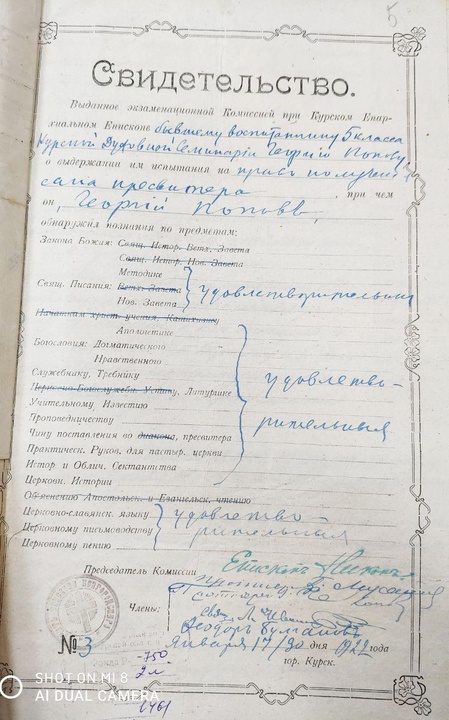 5
Свидетельство.
Выданное экзаменационной Комиссией при Курском Епар-
хиальном Епископе бывшему воспитаннику 5 класса
Курской Духовной Семинарiи Георгiю Попову,
о выдержании им испытания на право получения
сана пресвитера, при чем
он, Георгiй Поповъ,
обнаружил познания по предметам:
Закона Божия: Свящ. Истор. Ветх. Завета
Свящ. Истор. Нов. Завета
Методике
Свящ. Писания: Ветх. Завета удовлетворительныя
Нов. Завета
Начаткам христ. учения, Катихизису
Апологтике
Богословия: Догматического
Нравственного
Служебнику, Требнику удовлетво-
Церковно-Богослужебн. Уставу, Литургике
Учительному Известию
Проповедничеству рительныя
Чину поставления во диакона, пресвитера
Практическ. Руков. для пастыр. церкви
Истор и Облич. Сектантства
Церковн. Истории
Объяснению Апостольск. и Евангельск. чтению
Церковно-славянск. языку удовлетво-
Церковному письмоводству рительныя
Церковному пению
Председатель Комиссии Епископъ Никонъ.
Члены:
Свящ.
Феодоръ Булгаковъ
№ 3 Января 17/30 дня 1922 года
гор. Курск.
750
2 л
1461
SHOT ON MI 8
AI DUAL CAMERA